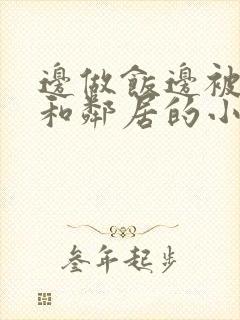 邊做飯邊被
和鄰居的小
叁年起步